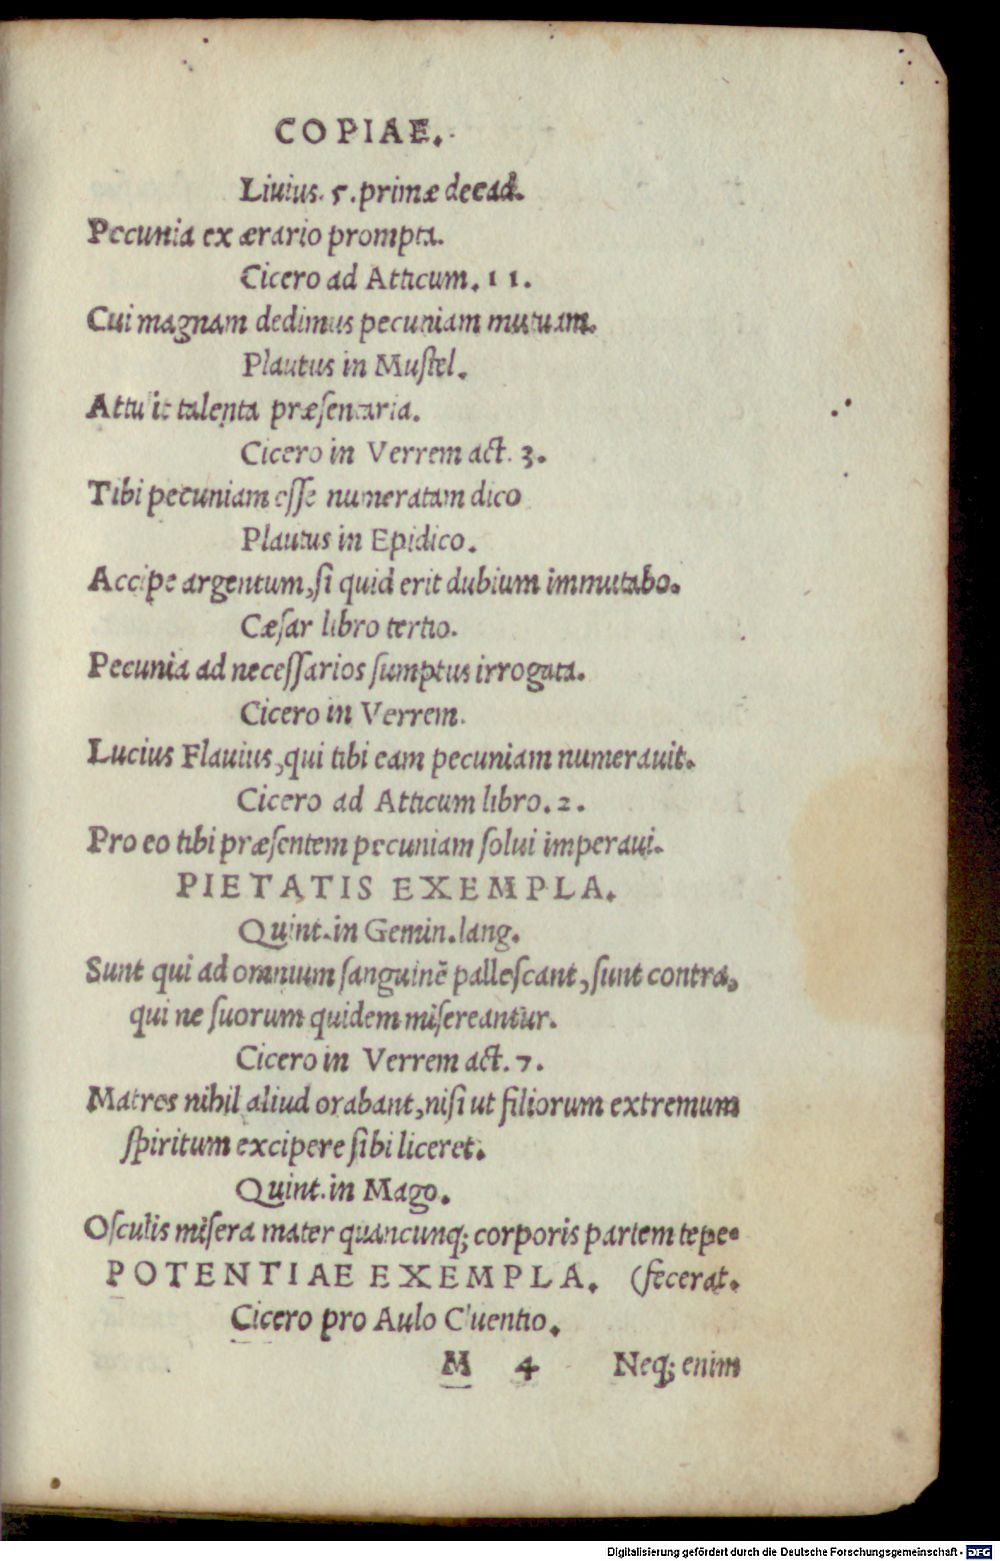 COPIAE.
Liuius. 5. primæ decad.
Pecunia ex ærario prompta.
Cicero ad Atticum. 11.
Cui magnam dedimus pecuniam mutuam.
Plautus in Muſtel.
Attulit talenta præſentaria.
Cicero in Verrem act. 3.
Tibi pecuniam eſſe numeratam dico
Plautus in Epidico.
Accipe argentum, ſi quid erit dubium immutabo.
Cæſar libro tertio.
Pecunia ad neceſſarios ſumptus irrogata.
Cicero in Verrem.
Lucius Flauius, qui tibi eam pecuniam numerauit.
Cicero ad Atticum libro. 2.
Pro eo tibi præſentem pecuniam ſolui imperaui.
PIETATIS EXEMPLA.
Quint. in Gemin. lang.
Sunt qui ad omnium ſanguinē palleſcant, ſunt contra,
qui ne ſuorum quidem miſereantur.
Cicero in Verrem act. 7.
Matres nihil aliud orabant, niſi ut filiorum extremum
ſpiritum excipere ſibi liceret.
Quint. in Mago.
Oſculis miſera mater quancunq; corporis partem tepe-
POTENTIAE EXEMPLA. (fecerat.
Cicero pro Aulo Cluentio.
M 4 Neq; enim
Digitalisierung gefördert durch die Deutsche Forschungsgemeinschaft - DFG